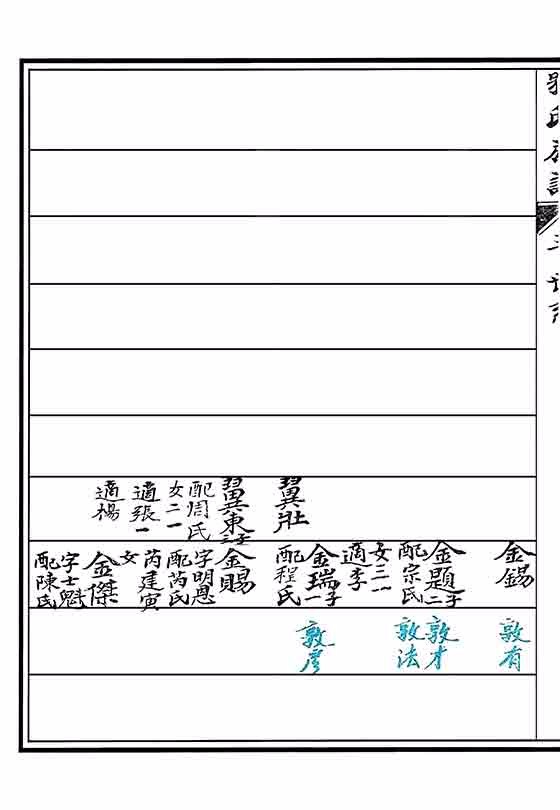 翼壯
翼東三子
配周氏
女二一
適張一
適楊
金錫
金題二子
配宗氏
女三一
適李
金瑞一子
配程氏
金賜
字明恩
配芮氏
芮建寅
女
金傑
字士魁
配陳氏
敦有
敦才
敦法
敦彦